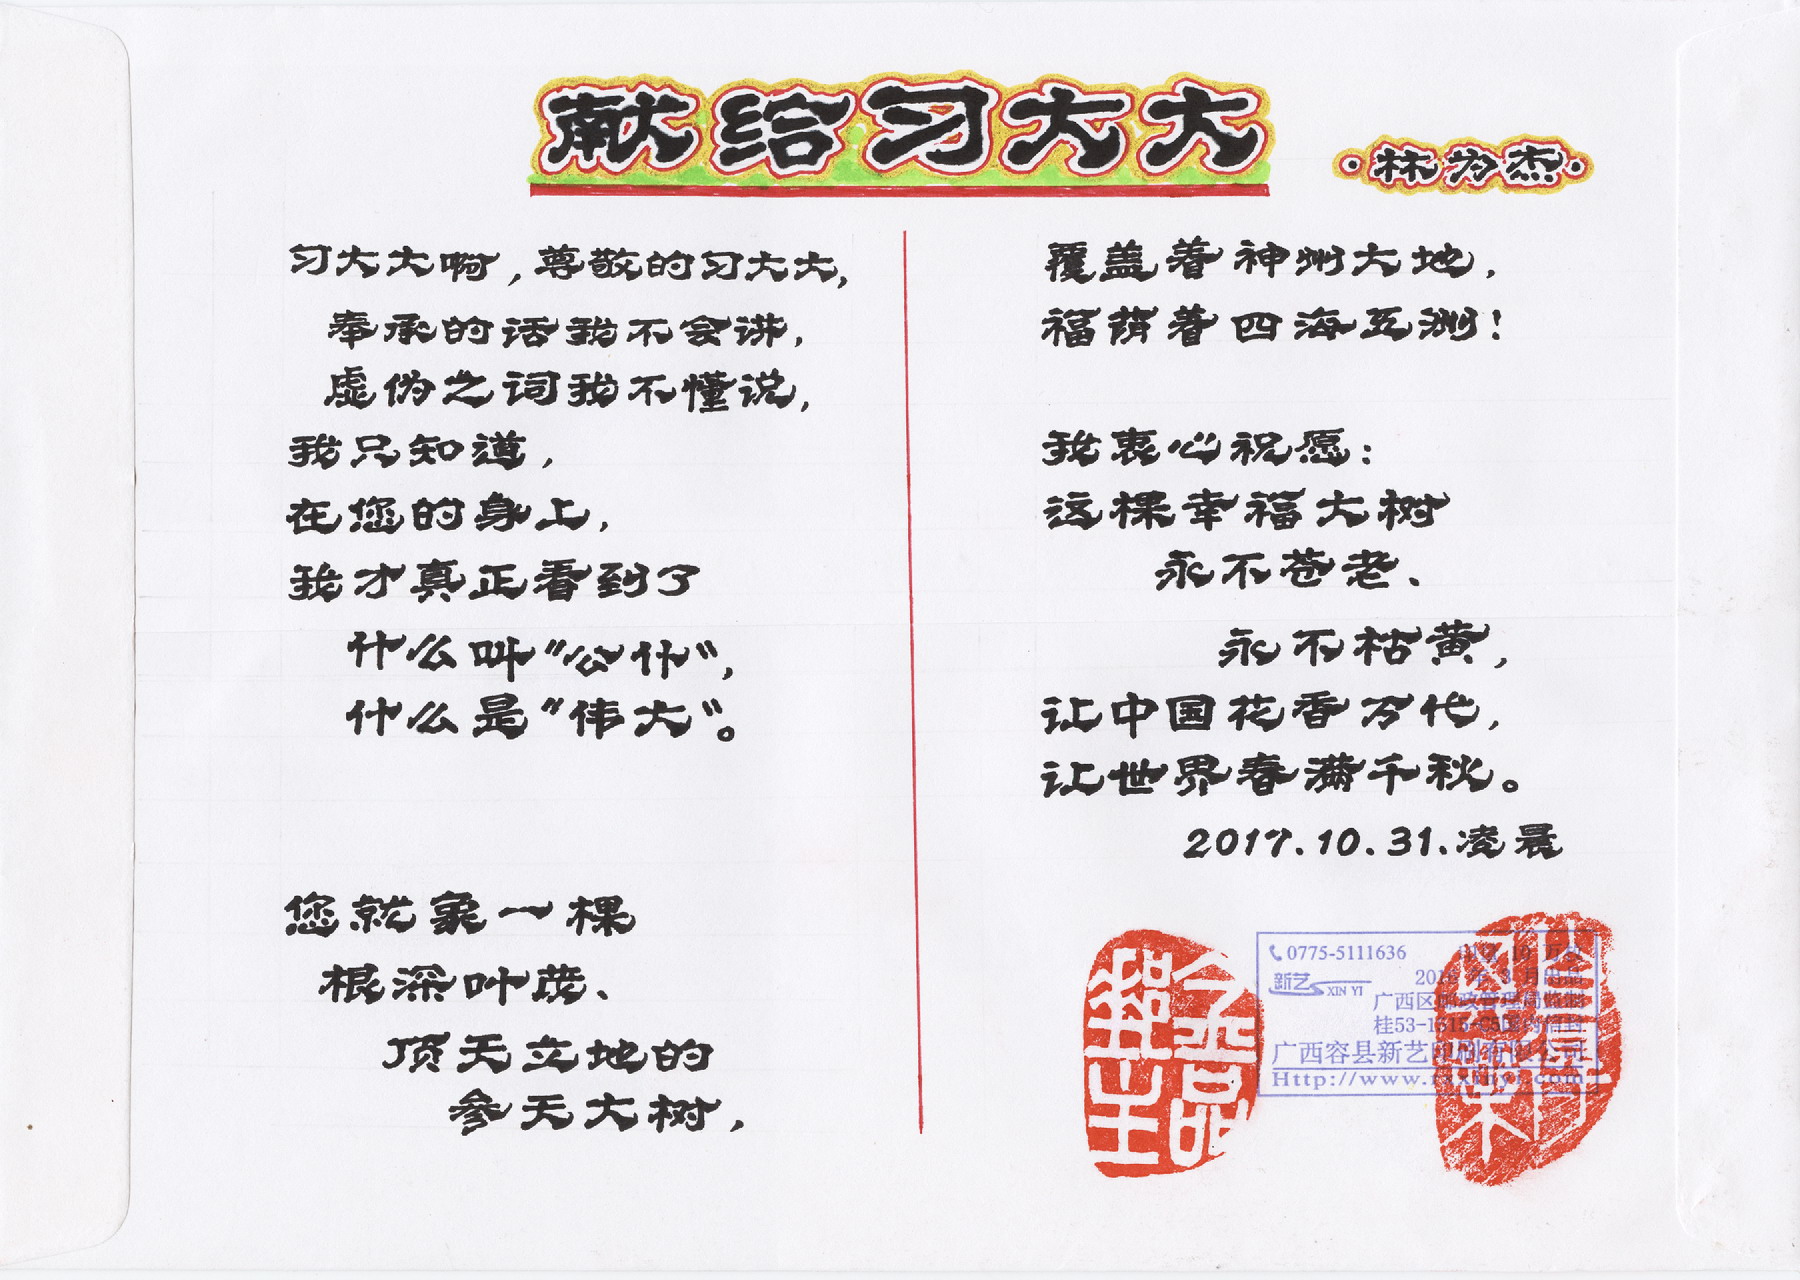 献给习大大
·林为杰·
习大大啊,尊敬的习大大,
奉承的话我不会讲,
虚伪之词我不懂说,
我只知道,
在您的身上,
我才真正看到了
什么叫“公仆”,
什么是“伟大”。
您就象一棵
根深叶茂、
顶天立地的
参天大树,
覆盖着神州大地,
福荫着四海五洲!
我衷心祝愿:
这棵幸福大树
永不苍老、
永不枯黄,
让中国花香万代,
让世界春满千秋。
2017.10.31.凌晨
0775-5111636
新艺 XIN YI
广西容县新艺印刷有限公司